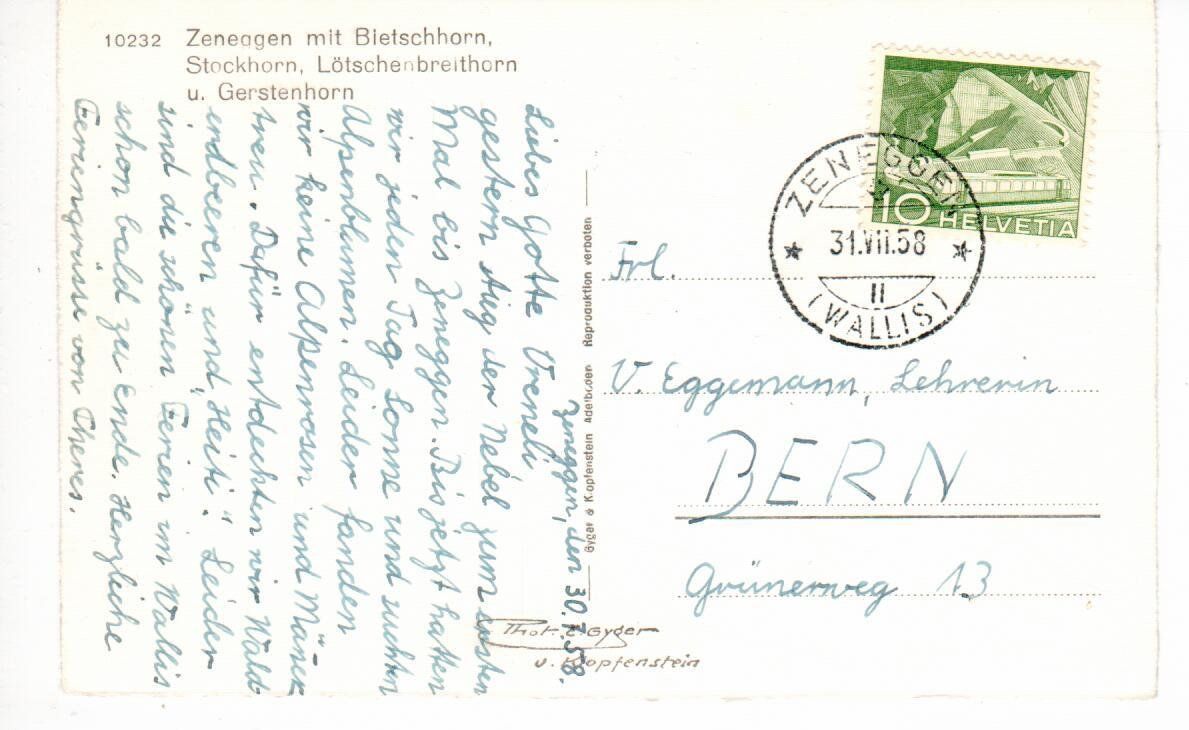 10232 Zeneggen mit Bietschhorn,
Stockhorn, Lötschenbreithorn
u. Gerstenhorn
Zeneggen, den 30.7.58.
Liebes Gotte Vreneli
gestern stieg der Nebel zum ersten
Mal bis Zeneggen. Bis jetzt hatten
wir jeden Tag Sonne und suchten
Alpenblumen. Leider fanden
wir keine Alpenrosen und Männer
treu. Dafür entdeckten wir Wald
erdbeeren und „Heiti“. Leider
sind die schönen Ferien im Wallis
schon bald zu Ende. Herzliche
Feriengrüsse von Theres.
Gyger & Klopfenstein Adelboden Reproduktion verboten
Phot. E. Gyger
u. Klopfenstein
10 HELVETIA
ZENEGGEN
31.VII.58
II
(WALLIS)
Frl.
V. Eggemann, Lehrerin
BERN
Grünerweg 13